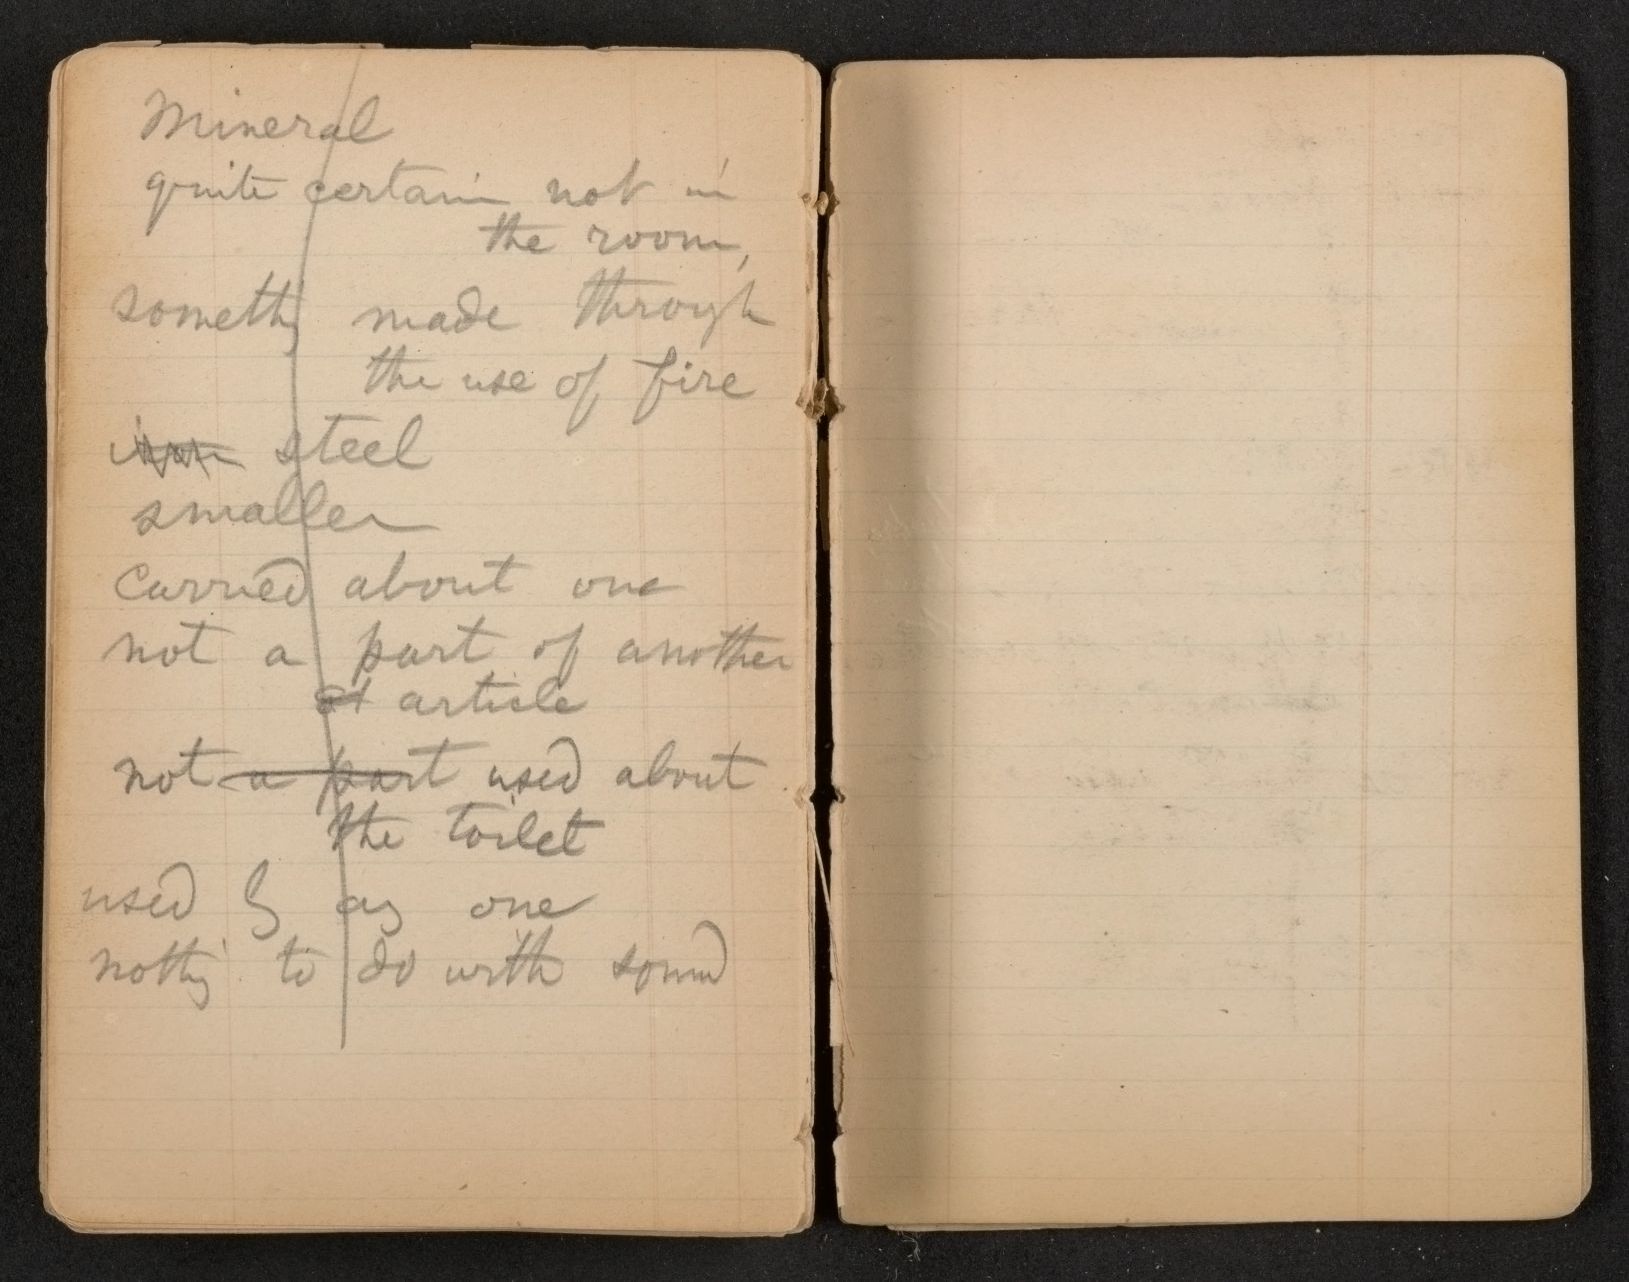 Mineral
quite certain not in
the room,
somethg made through
the use of fire
iron steel
smaller
carried about one
not a part of another
article
not a part used about
the toilet
used by as one
nothg to do with sound